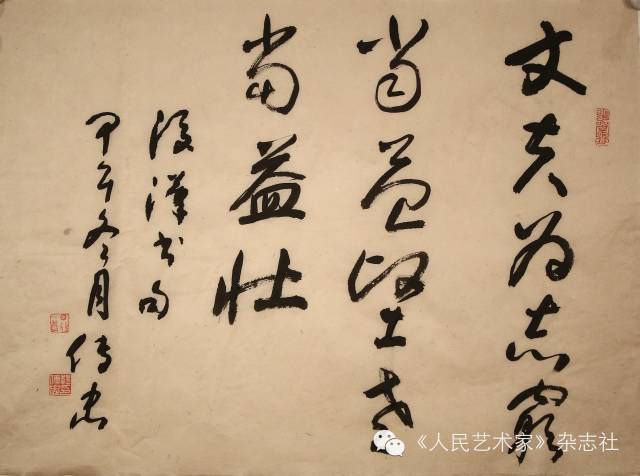 丈夫为志穷
当益坚老
当益壮
后汉书句
甲午冬月 传忠
《人民艺术家》杂志社